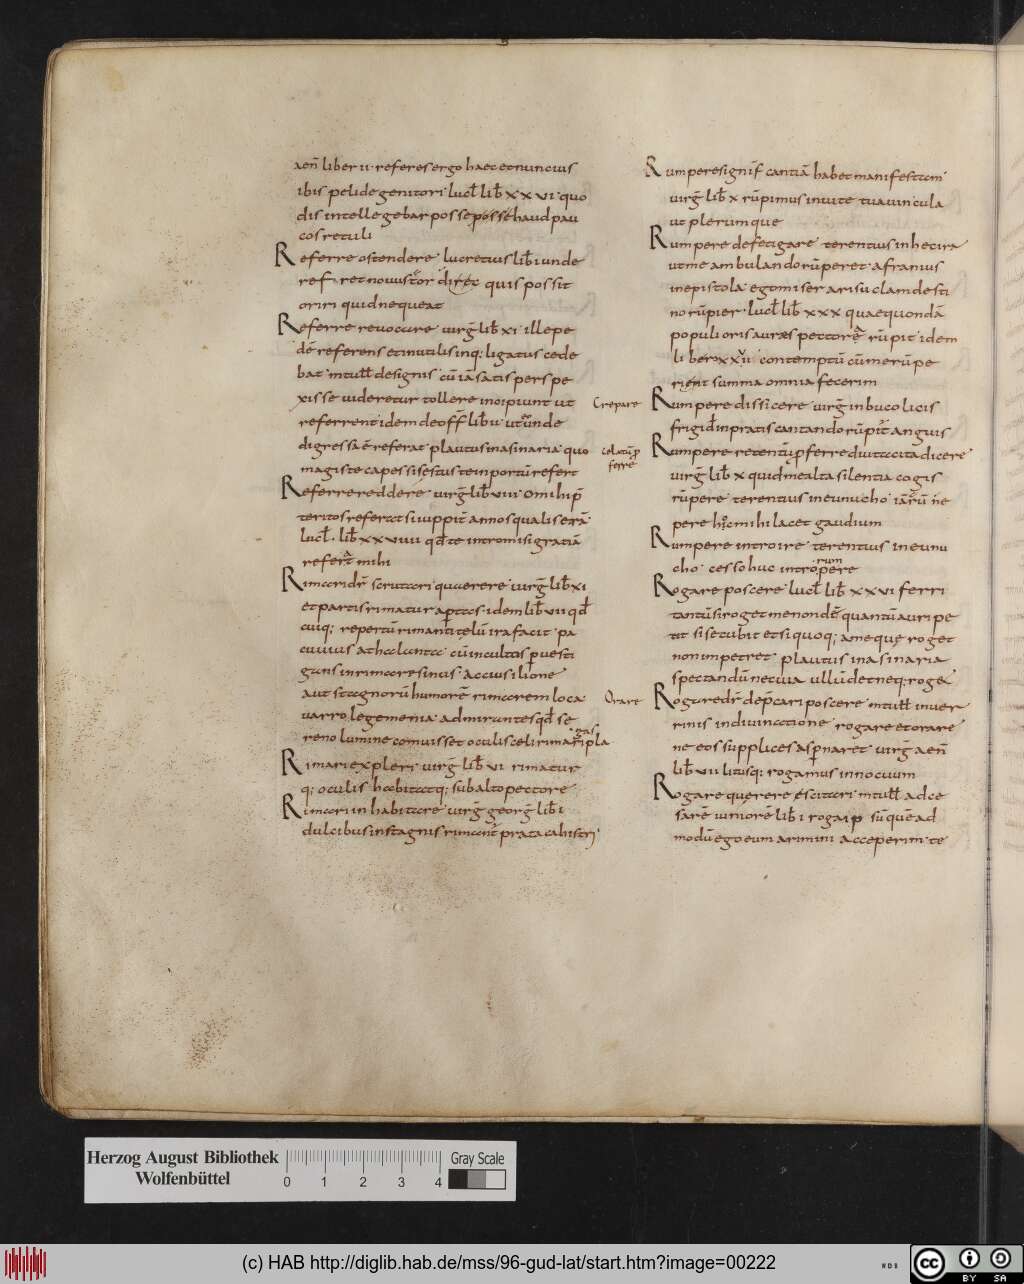 aeñ liber ii· referes ergo haec et nuncius
ibis pelide genitori· lucł lib̄ xxvi· quo
dis intellegebar posse posse haud pau
cos retuli
Referre ostendere· lucretius lib̄ i unde
refert novus
oriri quid nequeat
Referre revocare· virḡ lib̄ xi· ille pe
dē referens et inutilis inq; ligatus cede
bat· m tull de signis cū iā satis perspe
xisse videretur tollere incipiunt ut
referrent idem de off lib̄ ii
digressa ē referat plautus in asinaria· quo
magis te capessis estus te in portū refert
Referre reddere· virḡ lib̄ viii· omihi p̄
teritos referat si iuppit annos qualis erā
lucł· lib̄ xxviiii· qd te intro misi gratiā
referat mihi
Rimari dr̄ scrutari quaerere virḡ lib̄ xi
et partis rimatur apertas· idem lib̄ vii qd
cuiq; repertū rimanti telū ira facit· pa
cuvius atha cū incultos pervesti
gans inrimarem sinus· accius ilione
aut stagnorū humorē rimarem loca
varro legemenia· admirantes qd se
reno lumine conuisset oculis celi rimari pla
gas
Rimari expleri· virḡ lib̄ vi· rimatur
q; oculis habitatq; sub alto pectore
Rimari inhabitare· virḡ georḡ lib̄ i
dulcibus in stagnis rimant prata cahistri
Rumpere signif cantiā habet manifestam
virḡ lib̄ x rūpimus in vite tua vincula
ut plerumque
Rumpere defetigare· terentius in hecira
ut me ambulando rūperet· afranius
in epistola· ego miser a risu clam desti
no rūpier· lucł lib̄ xxx quae quondā
populi oris auras pectore rūpit· idem
liber xxvii contemptū cū merūpe
rient summa omnia fecerim
Crepare
Rumpere dissicere virḡ in bucolicis
frigid in pratis cantando rūpit anguis
colatū p
ferre
Rumpere retentū p ferre diu tacita dicere
virḡ lib̄ x quid me alta silentia cogis
rūpere· terentius in eunucho
pere hic mihi lacet gaudium
Rumpere introire· terentius in eunu
cho· cesso huc introrumpere
Rogare poscere· lucł lib̄ xxvi· ferri
tantū si roget me non dē quantū auri pe
tit si secubit et si quoq; a me quę roget
non impetret· plautus in asinaria
spectandū ne cui a ullū det neq; roget
Orare
Rogare dr̄ dep̄cari poscere· m tull in ver
rinis in divinatione· rogare et orare
ne eos supplices aspernaret· virḡ aeñ
lib̄ vii litusq; rogamus innocuum
Rogare querere escitari· m tull ad ce
sarē iuniorē lib̄ i roga ip sū quē ad
modū ego eum arimini acceperim· te
Herzog August Bibliothek
Wolfenbüttel
0 1 2 3 4
Gray Scale
(c) HAB http://diglib.hab.de/mss/96-gud-lat/start.htm?image=00222
WDB
cc BY SA